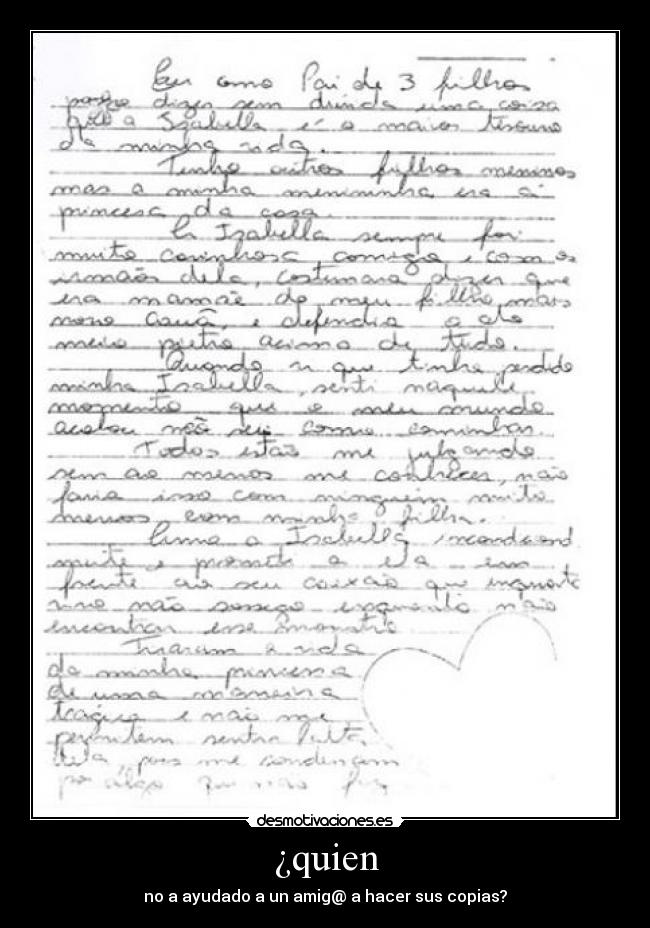 Eu como Pai de 3 filhos
posso dizer sem dúvida uma coisa
que a Isabella é o maior tesouro
da minha vida.
Tenho outros filhos meninos
mas a minha menininha era a
princesa da casa.
A Isabella sempre foi
muito carinhosa, comigo e com os
irmãos dela, costumava dizer que
era mamãe do meu filho mais
novo Cauã, e defendia o
meio pietro acima de tudo.
Quando vi que tinha perdido
minha Isabella, senti naquele
momento que o meu mundo
acabou não sei como caminhar.
Todos estão me julgando
sem ao menos me conhecer, não
faria isso com ninguém muito
menos com minha filha.
Amo a Isabella
muito e prometi a ela em
frente ao seu caixão que enquanto
vivo não sossego enquanto não
encontrar esse monstro
Tiraram a vida
da minha princesa
de uma maneira
trágica e não me
permitem sentir falta
dela, pois me condenam
por algo que não fiz
desmotivaciones.es
¿quien
no a ayudado a un amig@ a hacer sus copias?